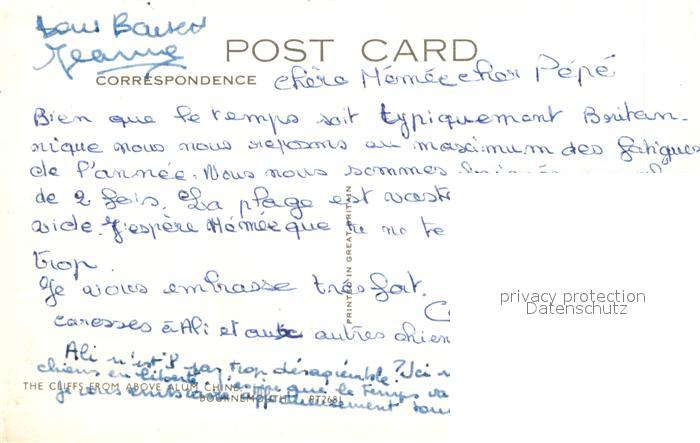 Bons Baisers
Jeanne
POST CARD
CORRESPONDENCE
chère Mémée cher Pépé
Bien que le temps soit typiquement Britan-
nique nous nous reposons au maximum des fatigues
de l'année. Nous nous sommes
de 2 fois. La plage est vaste
vide. J'espère Mémée que tu ne te
trop.
Je vous embrasse très fort.
caresses à Ali et aux autres chien
Ali n'est'il pas trop désagréable? Ici
chiens en liberté. J'espère que le temps va
THE CLIFFS FROM ABOVE ALUM CHINE,
Je vous embrasse
BOURNEMOUTH PT268
PRINTED IN GREAT BRITAIN
privacy protection
Datenschutz